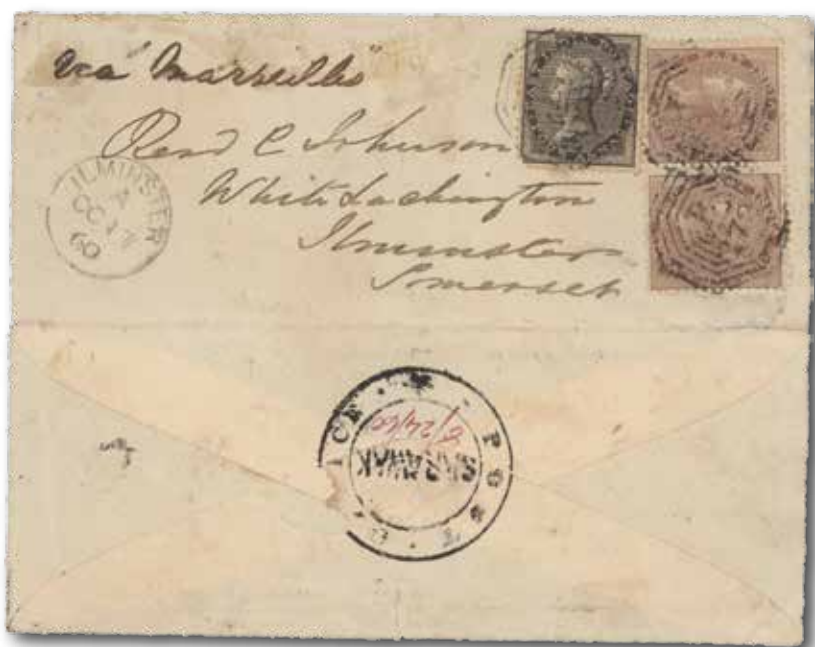 via Marseilles
Revd C Johnson
White Lackington
Ilminster
Somerset
ILMINSTER
A
OC 17
60
POST OFFICE
SARAWAK
8/24/60